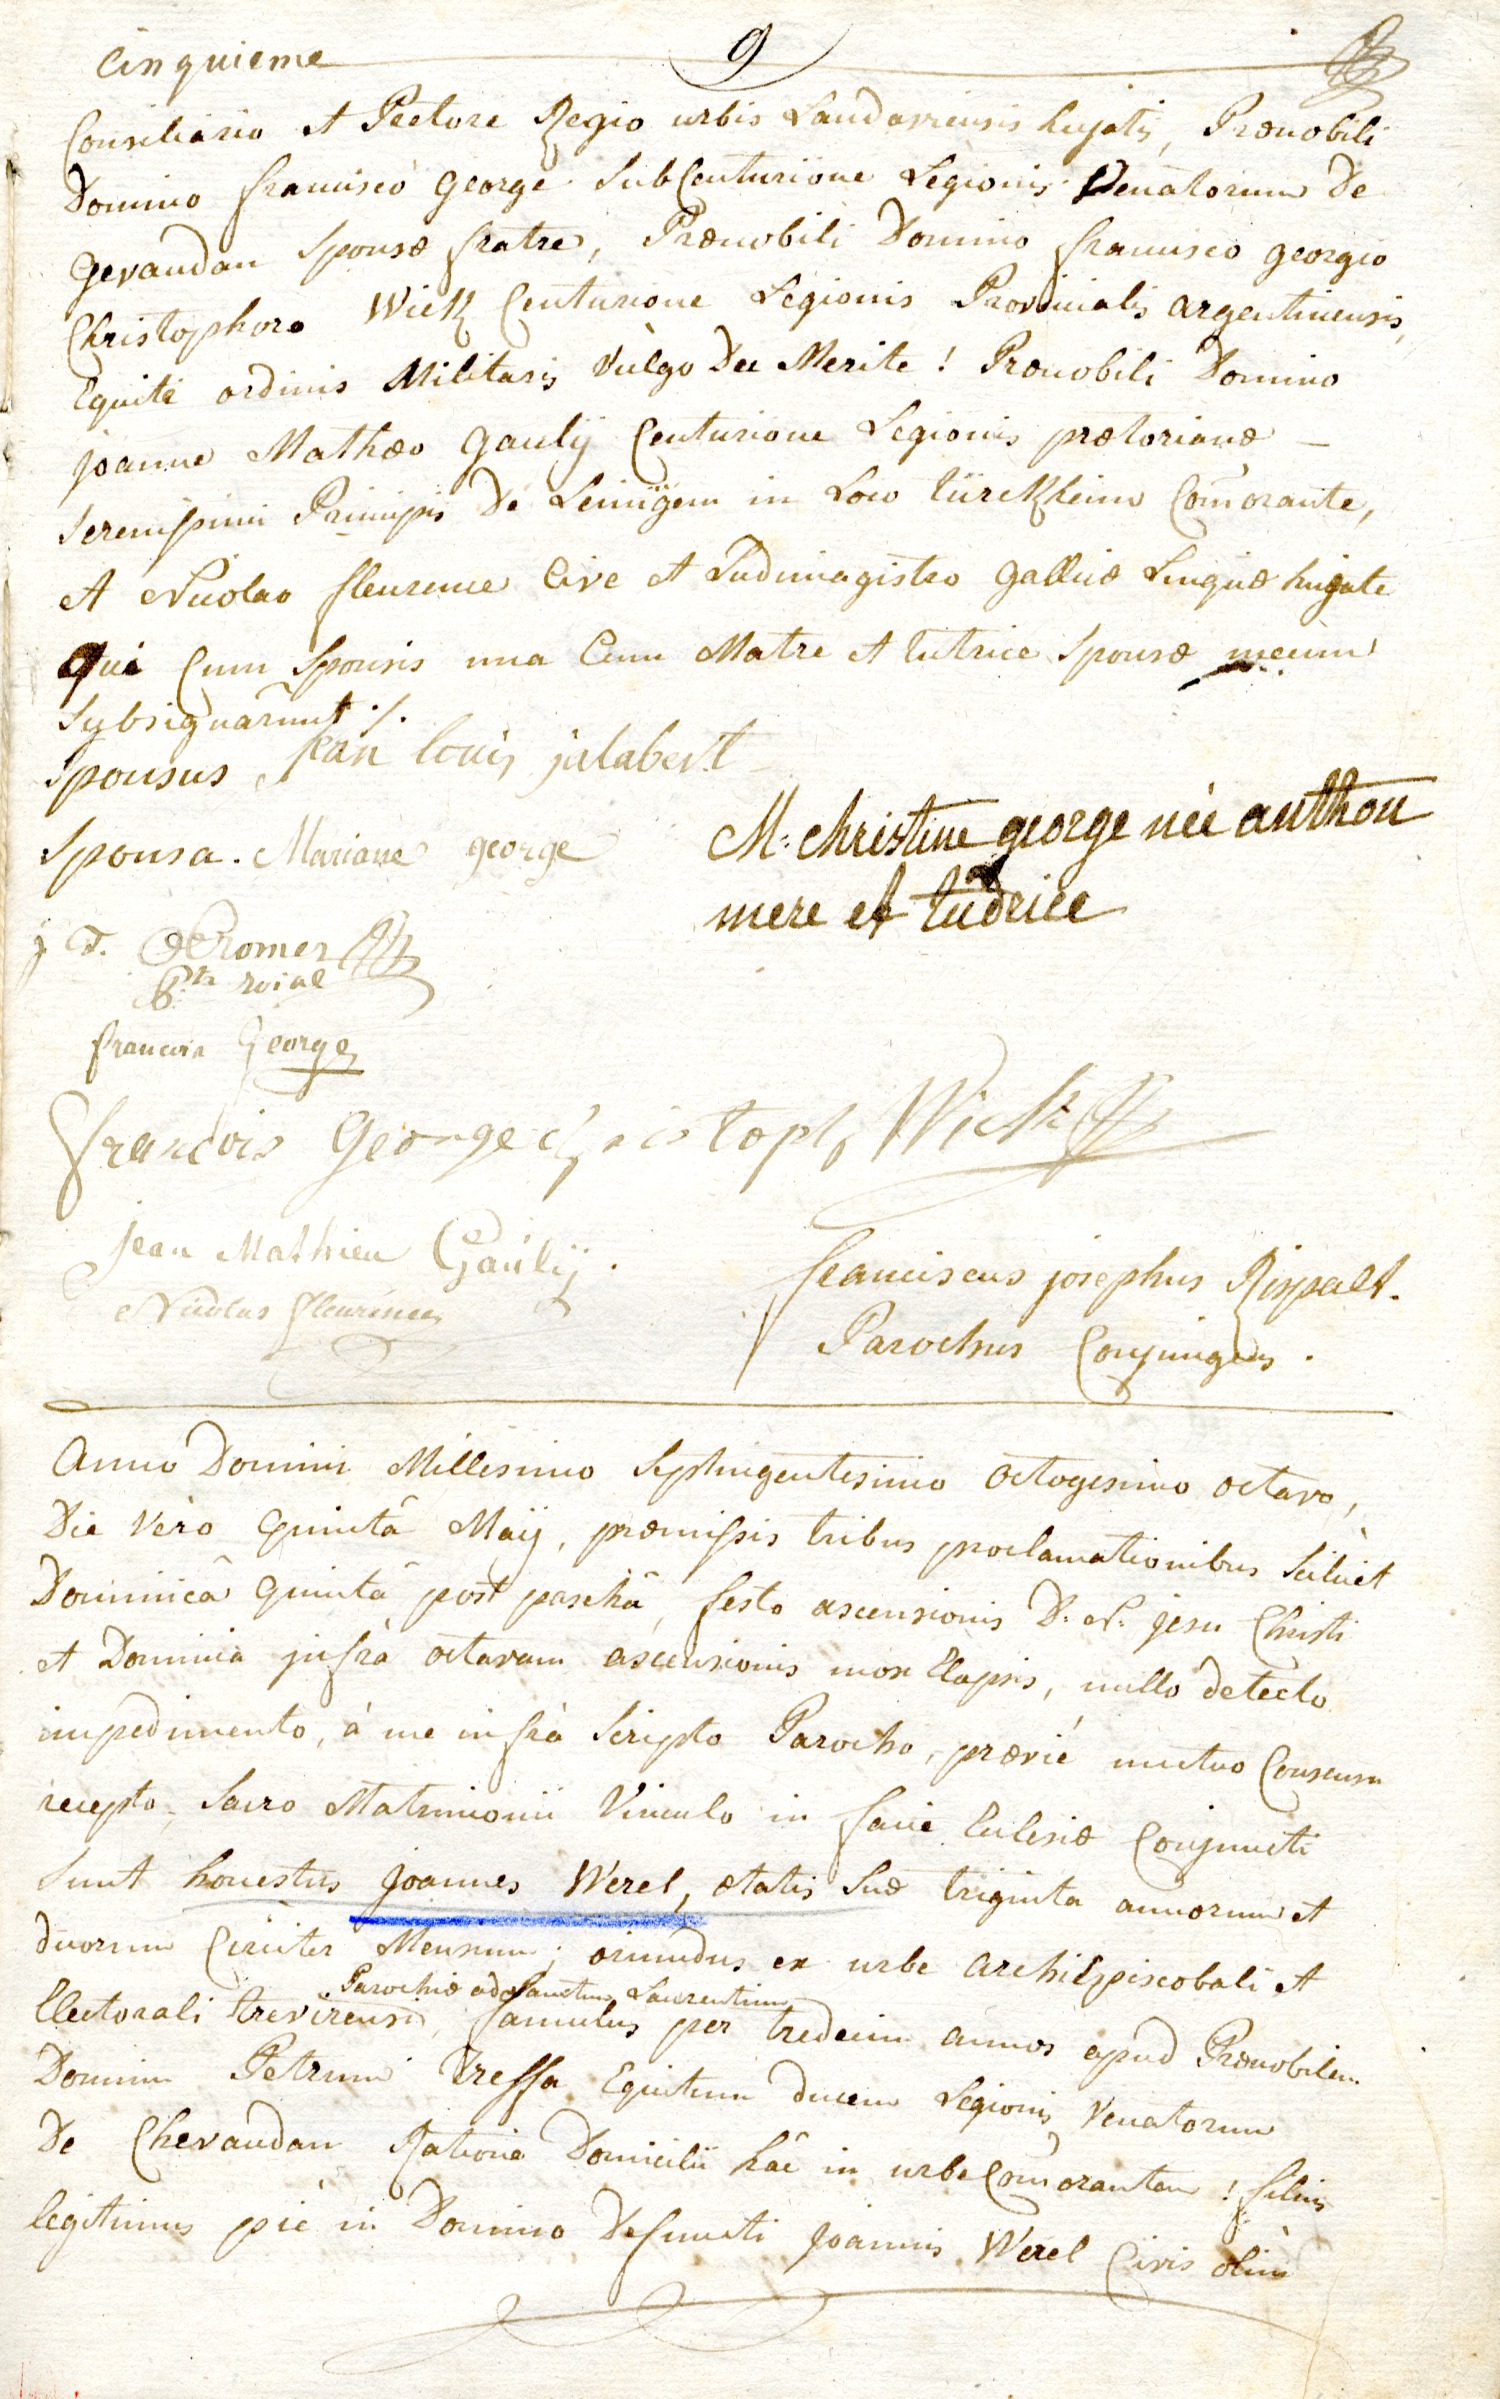 Cinquieme
9
Consiliario et Pretore Regio urbis Landaviensis hujatis, Prænobili
Domino francisco george SubCenturione Legionis Venatorum De
gevaudan Sponsæ fratre, Prænobili Domino francisco georgio
Christophoro Wick Centurione Legionis Provincialis argentinensis,
Equite ordinis Militaris vulgo Du Merite ! Prænobili Domino
joanne Mathæo gaulÿ Centurione Legionis prætorianæ
Serenissimi Principis De Leiningen in Loco türckheim Com̄orante,
et Nicolao fleurence Cive et Ludimagistro gallicæ Linguæ hujate
Qui Cum Sponsis una Cum Matre et tutrice Sponsæ mecum
Subsignarūnt ./.
Sponsus jean louis jalabert
M: christine george née anthon
Sponsa. Mariane george
mere et tudrice
j
romer
roial
francois George
francois George christoph Wick
jean Mathieu Gaulÿ.
franciscus josephus Rispalt.
Nicolas fleurence
Parochus Conjungens.
Anno Domini Millesimo Septingentesimo octogesimo octavo,
Die vero Quintâ Maÿ, præmissis tribus proclamationibus Scilicèt
Dominicâ Quintâ post paschâ, festo ascensionis D: N: jesu Christi
et Dominica jnfrà octavam ascensionis mox Elapsis, nullo detecto
impedimento, à me infrà Scripto Parocho, præviè mutuo Consensu
recepto, Sacro Matrimonii Vinculo in facie Ecclesiæ Conjuncti
Sunt honestus joannes Werel, ætatis Suæ triginta annorum et
duorum Circiter Mensium; oriundus ex urbe archiEpiscobali et
Parochiæ ad Sanctum Laurentium
Electorali trevirensi, famulus per tredecim annos apud Prænobilem
Dominum Petrum Tressa Equitum ducem Legionis Venatorum
De Chevaudan Ratione Domicilii hâc in urbe Com̄orantem ! filius
legitimus piè in Domino Defuncti joannis Werel Civis olim